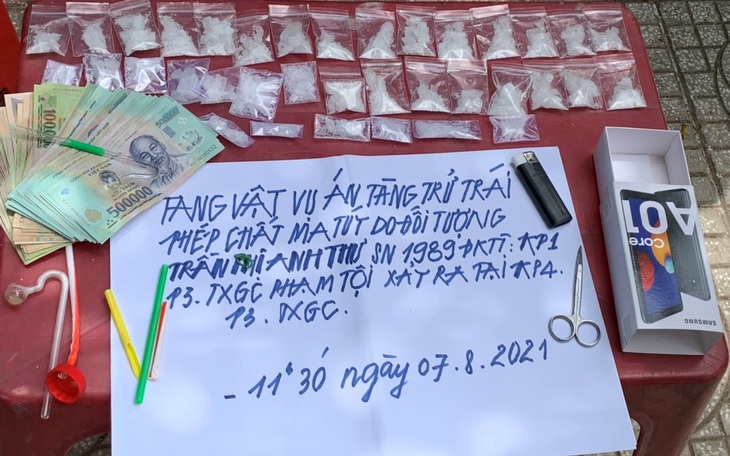 TANG VẬT VỤ ÁN TÀNG TRỮ TRÁI
PHÉP CHẤT MA TÚY DO ĐỐI TƯỢNG
TRẦN THỊ ANH THƯ SN 1989 ĐKTT: KP1
P3. TXGC PHẠM TỘI XẢY RA TẠI KP4.
P3. TXGC.
- 11ʰ30 ngày 07.8.2021
500000
100000
A01
Core
SAMSUNG